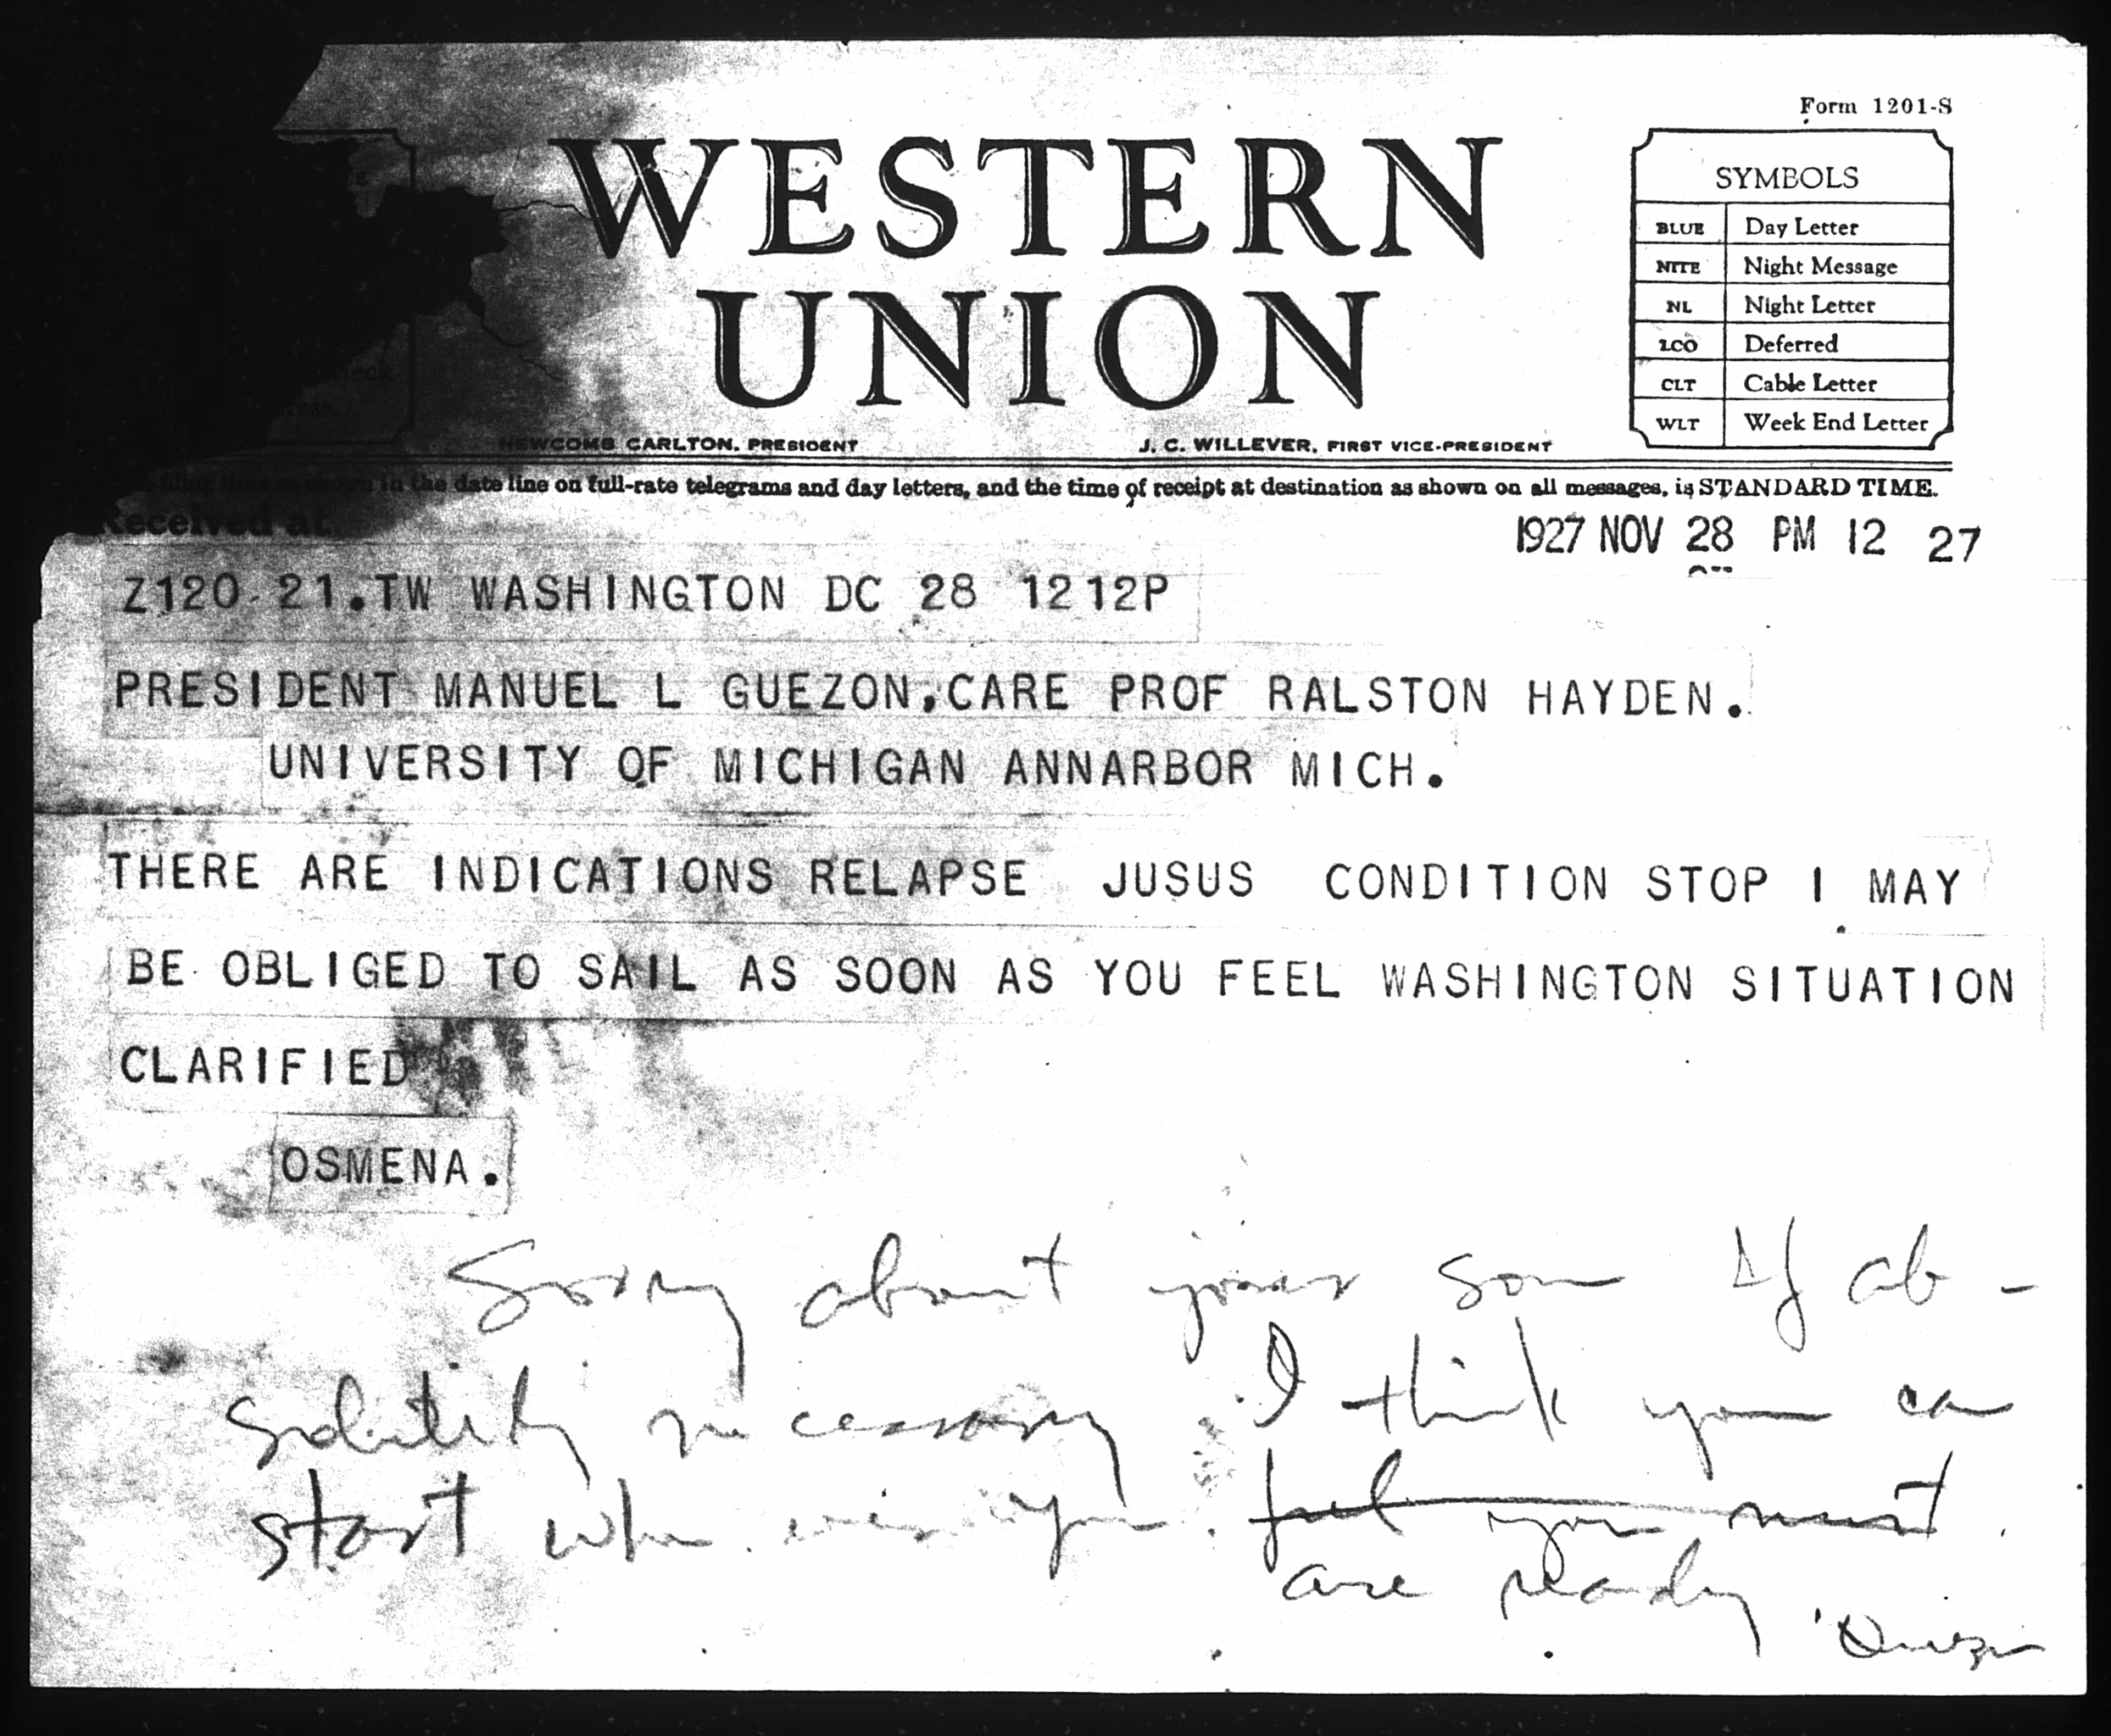 Form 1201-S
WESTERN
UNION
SYMBOLS
BLUE Day Letter
NITE Night Message
NL Night Letter
LCO Deferred
CLT Cable Letter
WLT Week End Letter
NEWCOMB CARLTON, PRESIDENT J. C. WILLEVER, FIRST VICE-PRESIDENT
filing time as shown in the date line on full-rate telegrams and day letters, and the time of receipt at destination as shown on all messages, is STANDARD TIME.
Received at
1927 NOV 28 PM 12 27
Z120 21.TW WASHINGTON DC 28 1212P
PRESIDENT MANUEL L GUEZON,CARE PROF RALSTON HAYDEN.
UNIVERSITY OF MICHIGAN ANNARBOR MICH.
THERE ARE INDICATIONS RELAPSE JUSUS CONDITION STOP I MAY
BE OBLIGED TO SAIL AS SOON AS YOU FEEL WASHINGTON SITUATION
CLARIFIED
OSMENA.
Sorry about your son If ab-
solutely necessary I think you can
start when you feel you must.
are ready
Quezon